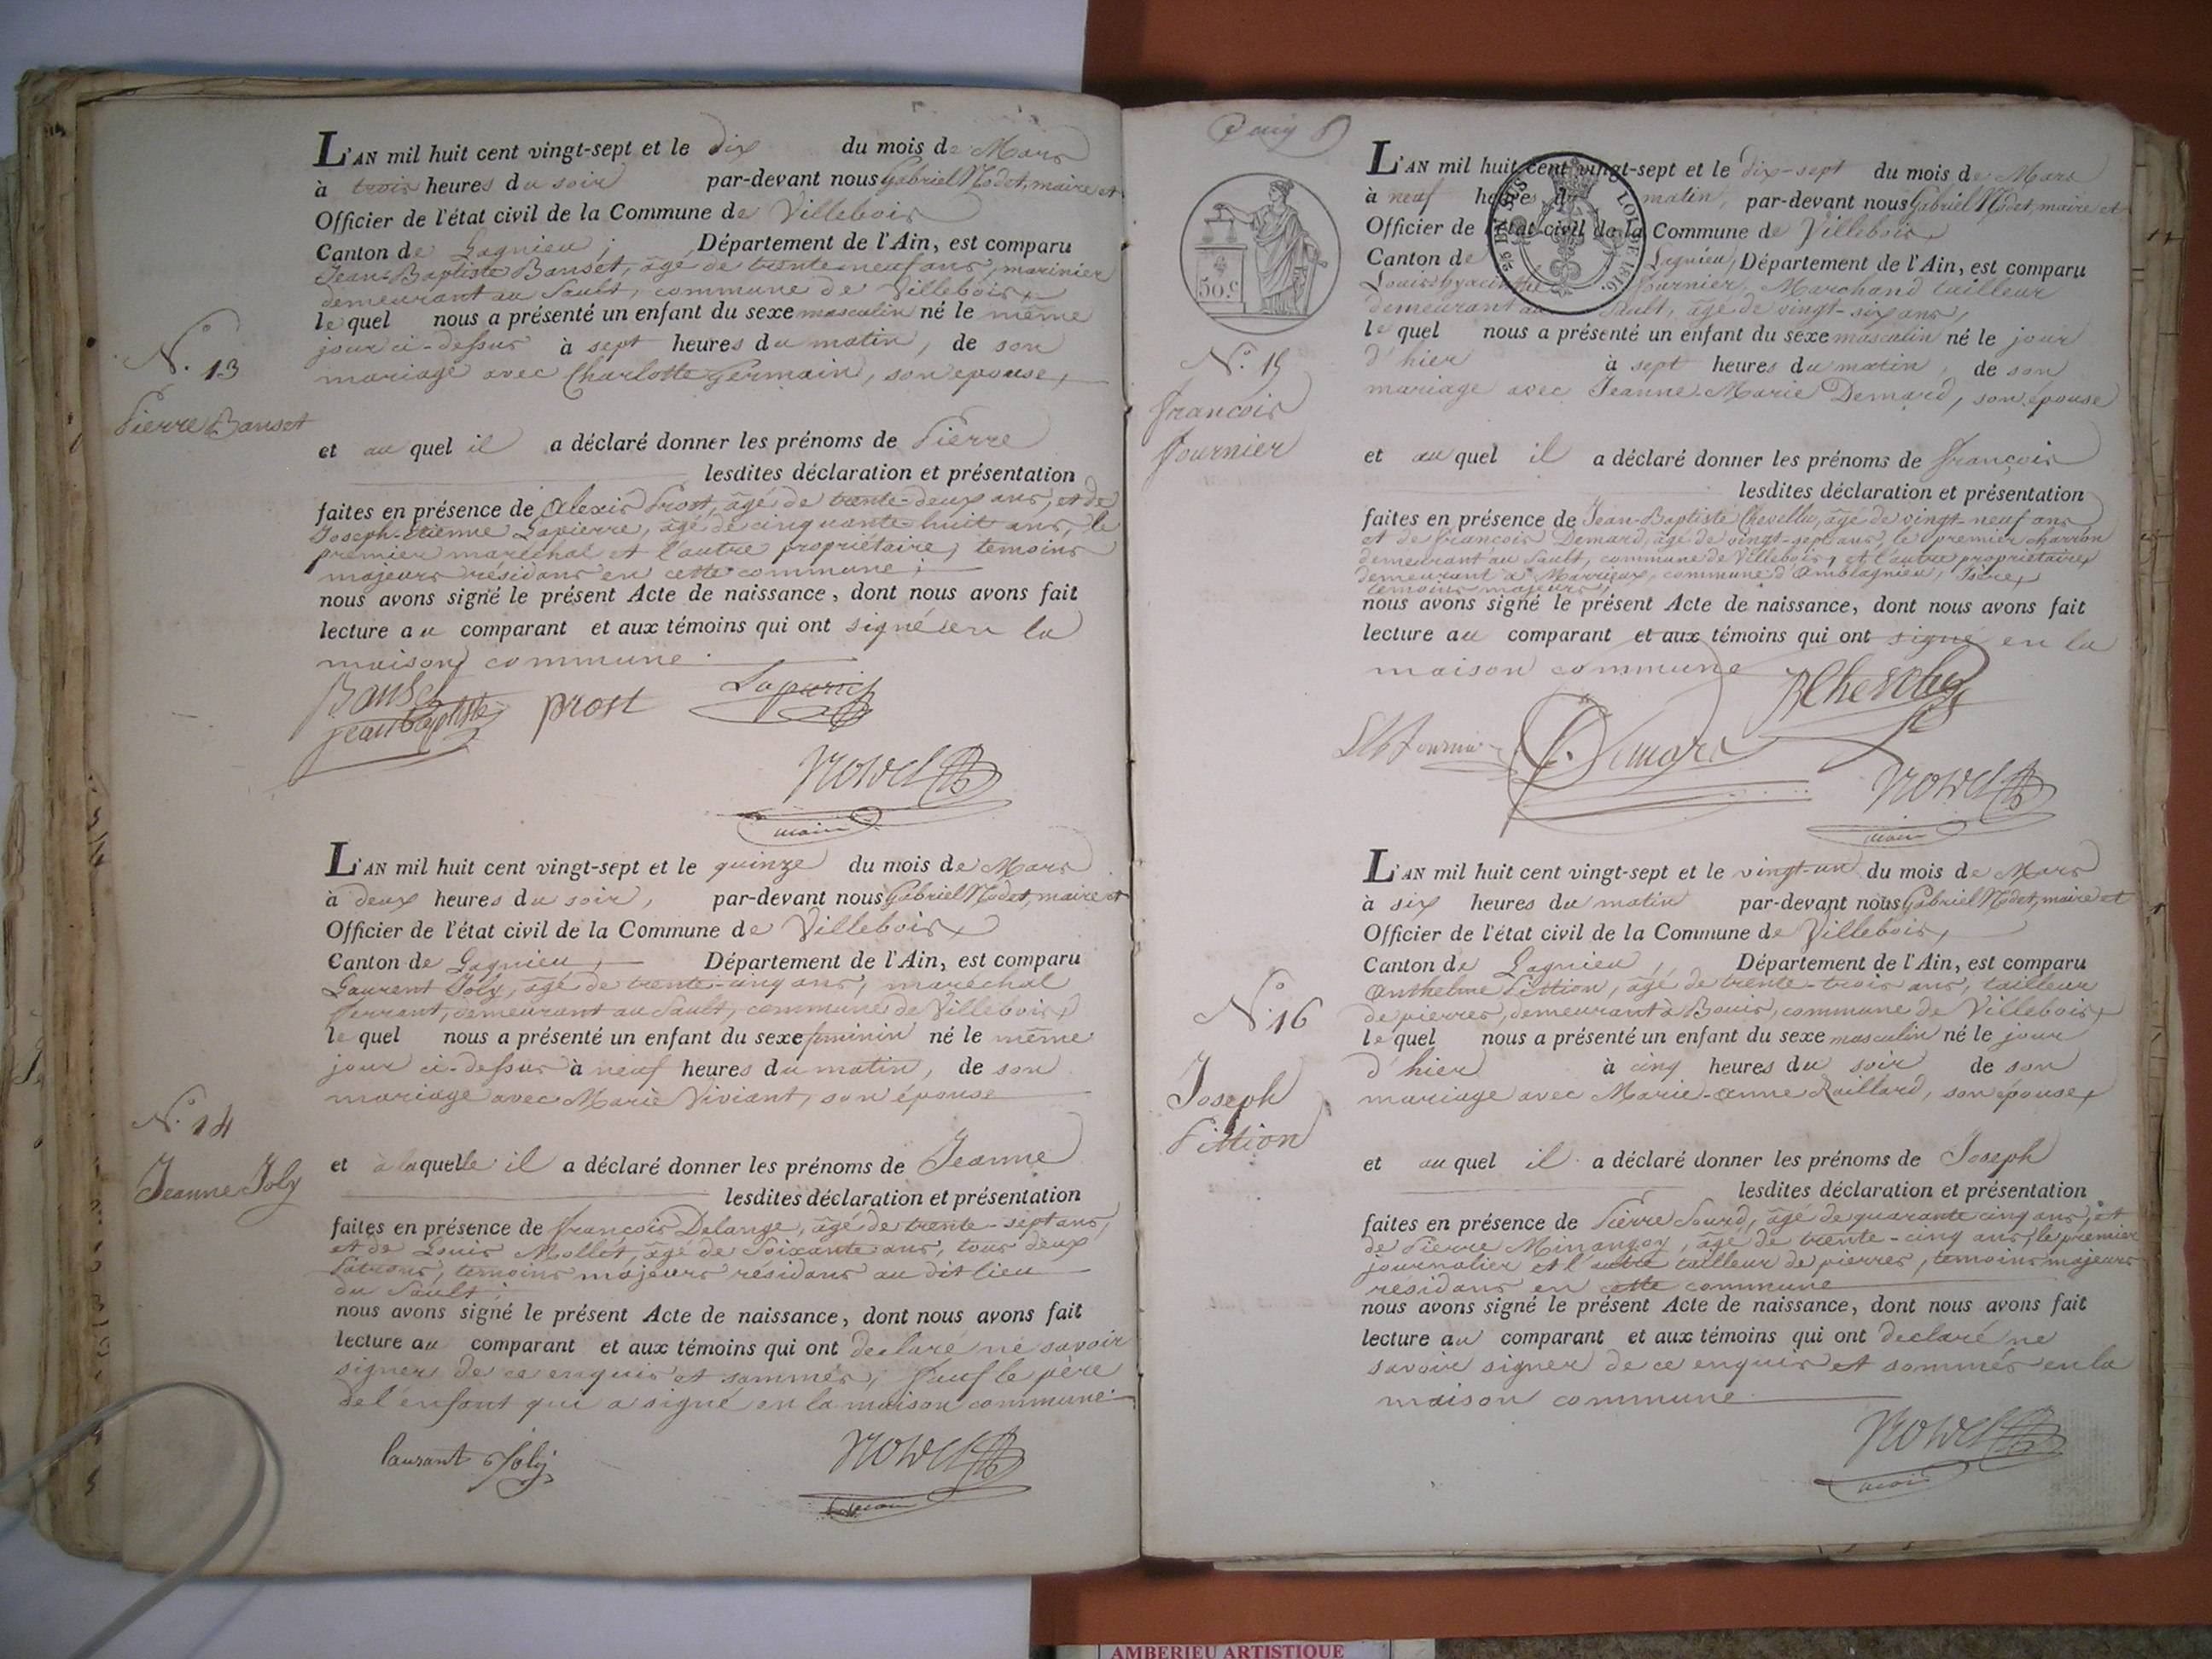 L'AN mil huit cent vingt-sept et le dix du mois de Mars
à trois heures du soir par-devant nous Gabriel Nodet, maire et
Officier de l'état civil de la Commune de Villebois
Canton de Lagnieu, Département de l'Ain, est comparu
Jean-Baptiste Banset, âgé de trente neuf ans, marinier
demeurant au Sault, commune de Villebois,
le quel nous a présenté un enfant du sexe masculin né le même
jour ci-dessus à sept heures du matin, de son
mariage avec Charlotte Germain, son épouse,
N.° 13
Pierre Banset
et au quel il a déclaré donner les prénoms de Pierre
lesdites déclaration et présentation
faites en présence de Alexis Prost, âgé de trente-deux ans, et de
Joseph-Etienne Lapierre, âgé de cinquante-huit ans, le
premier maréchal et l'autre propriétaire, temoins
majeurs résidans en cette commune;
nous avons signé le présent Acte de naissance, dont nous avons fait
lecture au comparant et aux témoins qui ont signé en la
maison commune.
Banset
jean baptiste prost
maire
L'AN mil huit cent vingt-sept et le quinze du mois de Mars
à deux heures du soir, par-devant nous Gabriel Nodet, maire et
Officier de l'état civil de la Commune de Villebois
Canton de Lagnieu, Département de l'Ain, est comparu
Laurent Joly, âgé de trente-cinq ans, maréchal
ferrant, demeurant au Sault, commune de Villebois,
le quel nous a présenté un enfant du sexe feminin né le même
jour ci-dessus à neuf heures du matin, de son
mariage avec Marie Viviant, son épouse
N.° 14
Jeanne Joly
et à laquelle il a déclaré donner les prénoms de Jeanne
lesdites déclaration et présentation
faites en présence de François Delange, âgé de trente-sept ans,
et de Louis Mollet, âgé de Soixante ans, tous deux
Patrons, temoins majeurs résidans au dit lieu
du Sault;
nous avons signé le présent Acte de naissance, dont nous avons fait
lecture au comparant et aux témoins qui ont declaré ne savoir
signer de ce enquis et sommés, sauf le père
de l'enfant qui a signé en la maison commune.
laurant Joly
maire
50.c
L'AN mil huit cent vingt-sept et le dix-sept du mois de Mars
à neuf heures du matin, par-devant nous Gabriel Nodet, maire et
Officier de l'état civil de la Commune de Villebois
Canton de Lagnieu, Département de l'Ain, est comparu
Louis hyacinthe Fournier, Marchand tailleur
demeurant au Sault, âgé de vingt-six ans,
le quel nous a présenté un enfant du sexe masculin né le jour
d'hier à sept heures du matin, de son
mariage avec Jeanne-Marie Demard, son épouse
N.° 15
François
Fournier
et au quel il a déclaré donner les prénoms de François
lesdites déclaration et présentation
faites en présence de Jean-Baptiste Chevelle, âgé de vingt-neuf ans
et de François Demard, âgé de vingt-sept ans, le premier charron
demeurant au Sault, commune de Villebois, et l'autre propriétaire
demeurant à commune d'Amblagnieu, Isère,
temoins majeurs,
nous avons signé le présent Acte de naissance, dont nous avons fait
lecture au comparant et aux témoins qui ont signé en la
maison commune
maire
L'AN mil huit cent vingt-sept et le vingt-un du mois de Mars
à six heures du matin par-devant nous Gabriel Nodet, maire et
Officier de l'état civil de la Commune de Villebois,
Canton de Lagnieu, Département de l'Ain, est comparu
Anthelme Fittion, âgé de trente-trois ans, tailleur
de pierres, demeurant à Bouis, commune de Villebois,
le quel nous a présenté un enfant du sexe masculin né le jour
d'hier à cinq heures du soir de son
mariage avec Marie-Anne Raillard, son épouse,
N.° 16
Joseph
Fittion
et au quel il a déclaré donner les prénoms de Joseph
lesdites déclaration et présentation
faites en présence de Pierre Sourd, âgé de quarante cinq ans, et
de Pierre Minangoy, âgé de trente-cinq ans, le premier
journalier et l'autre tailleur de pierres, temoins majeurs
résidans en cette commune
nous avons signé le présent Acte de naissance, dont nous avons fait
lecture au comparant et aux témoins qui ont declaré ne
savoir signer de ce enquis et sommés en la
maison commune
maire
AMBERIEU ARTISTIQUE